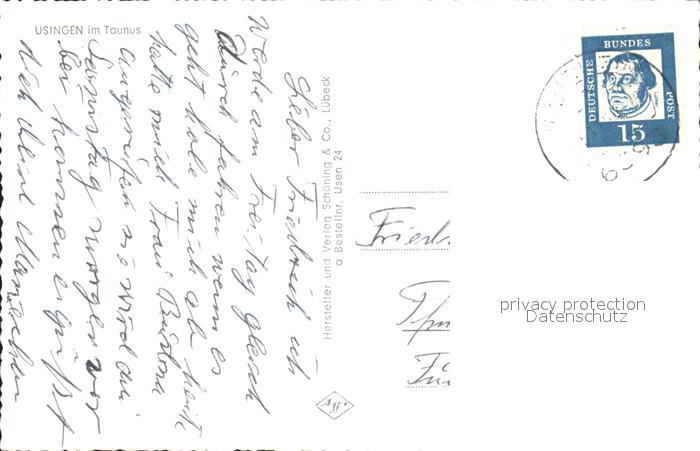 USINGEN im Taunus
Lieber Friedrich ich
werde am Freitag gleich
durch fahren wenn es
geht hole mich ab heute
hatte mich Frau
angerufen sie wird am
Samstag morgen vor
bei kommen es grüßt
dich dein
Hersteller und Verlag Schöning & Co., Lübeck
a Bestellnr. Usen 24
DEUTSCHE BUNDES POST
15
Agfa
privacy protection
Datenschutz